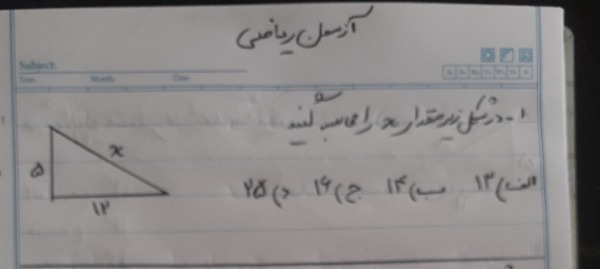 آزمون ریاضی
Subject:
Year Month Date
۱- در شکل زیر مقدار x را محاسبه کنید
الف) ۱۳ ب) ۱۴ ج) ۱۶ د) ۲۵
x
۵
۱۲